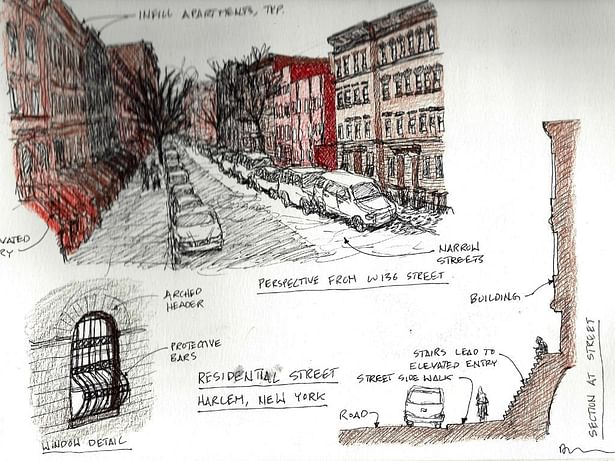 INFILL APARTMENTS, TYP.
VATED
RY
NARROW
STREETS
PERSPECTIVE FROM W136 STREET
ARCHED
HEADER
PROTECTIVE
BARS
WINDOW DETAIL
RESIDENTIAL STREET
HARLEM, NEW YORK
BUILDING
STAIRS LEAD TO
ELEVATED ENTRY
STREET SIDE WALK
ROAD
SECTION AT STREET